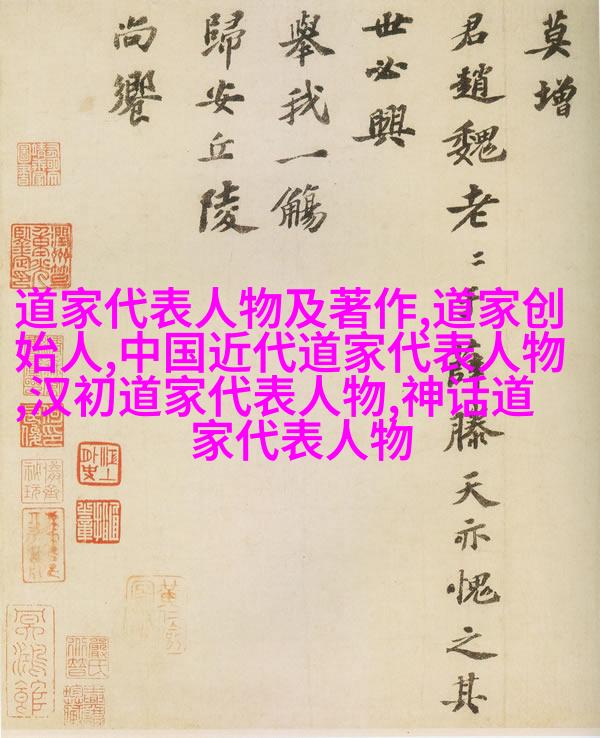 莫增
君趙魏老〻于薛滕天亦愧之其
世必興
舉我一觴
歸安丘陵
尚饗
道家代表人物及著作,道家创
始人,中国近代道家代表人物
,汉初道家代表人物,神话道
家代表人物